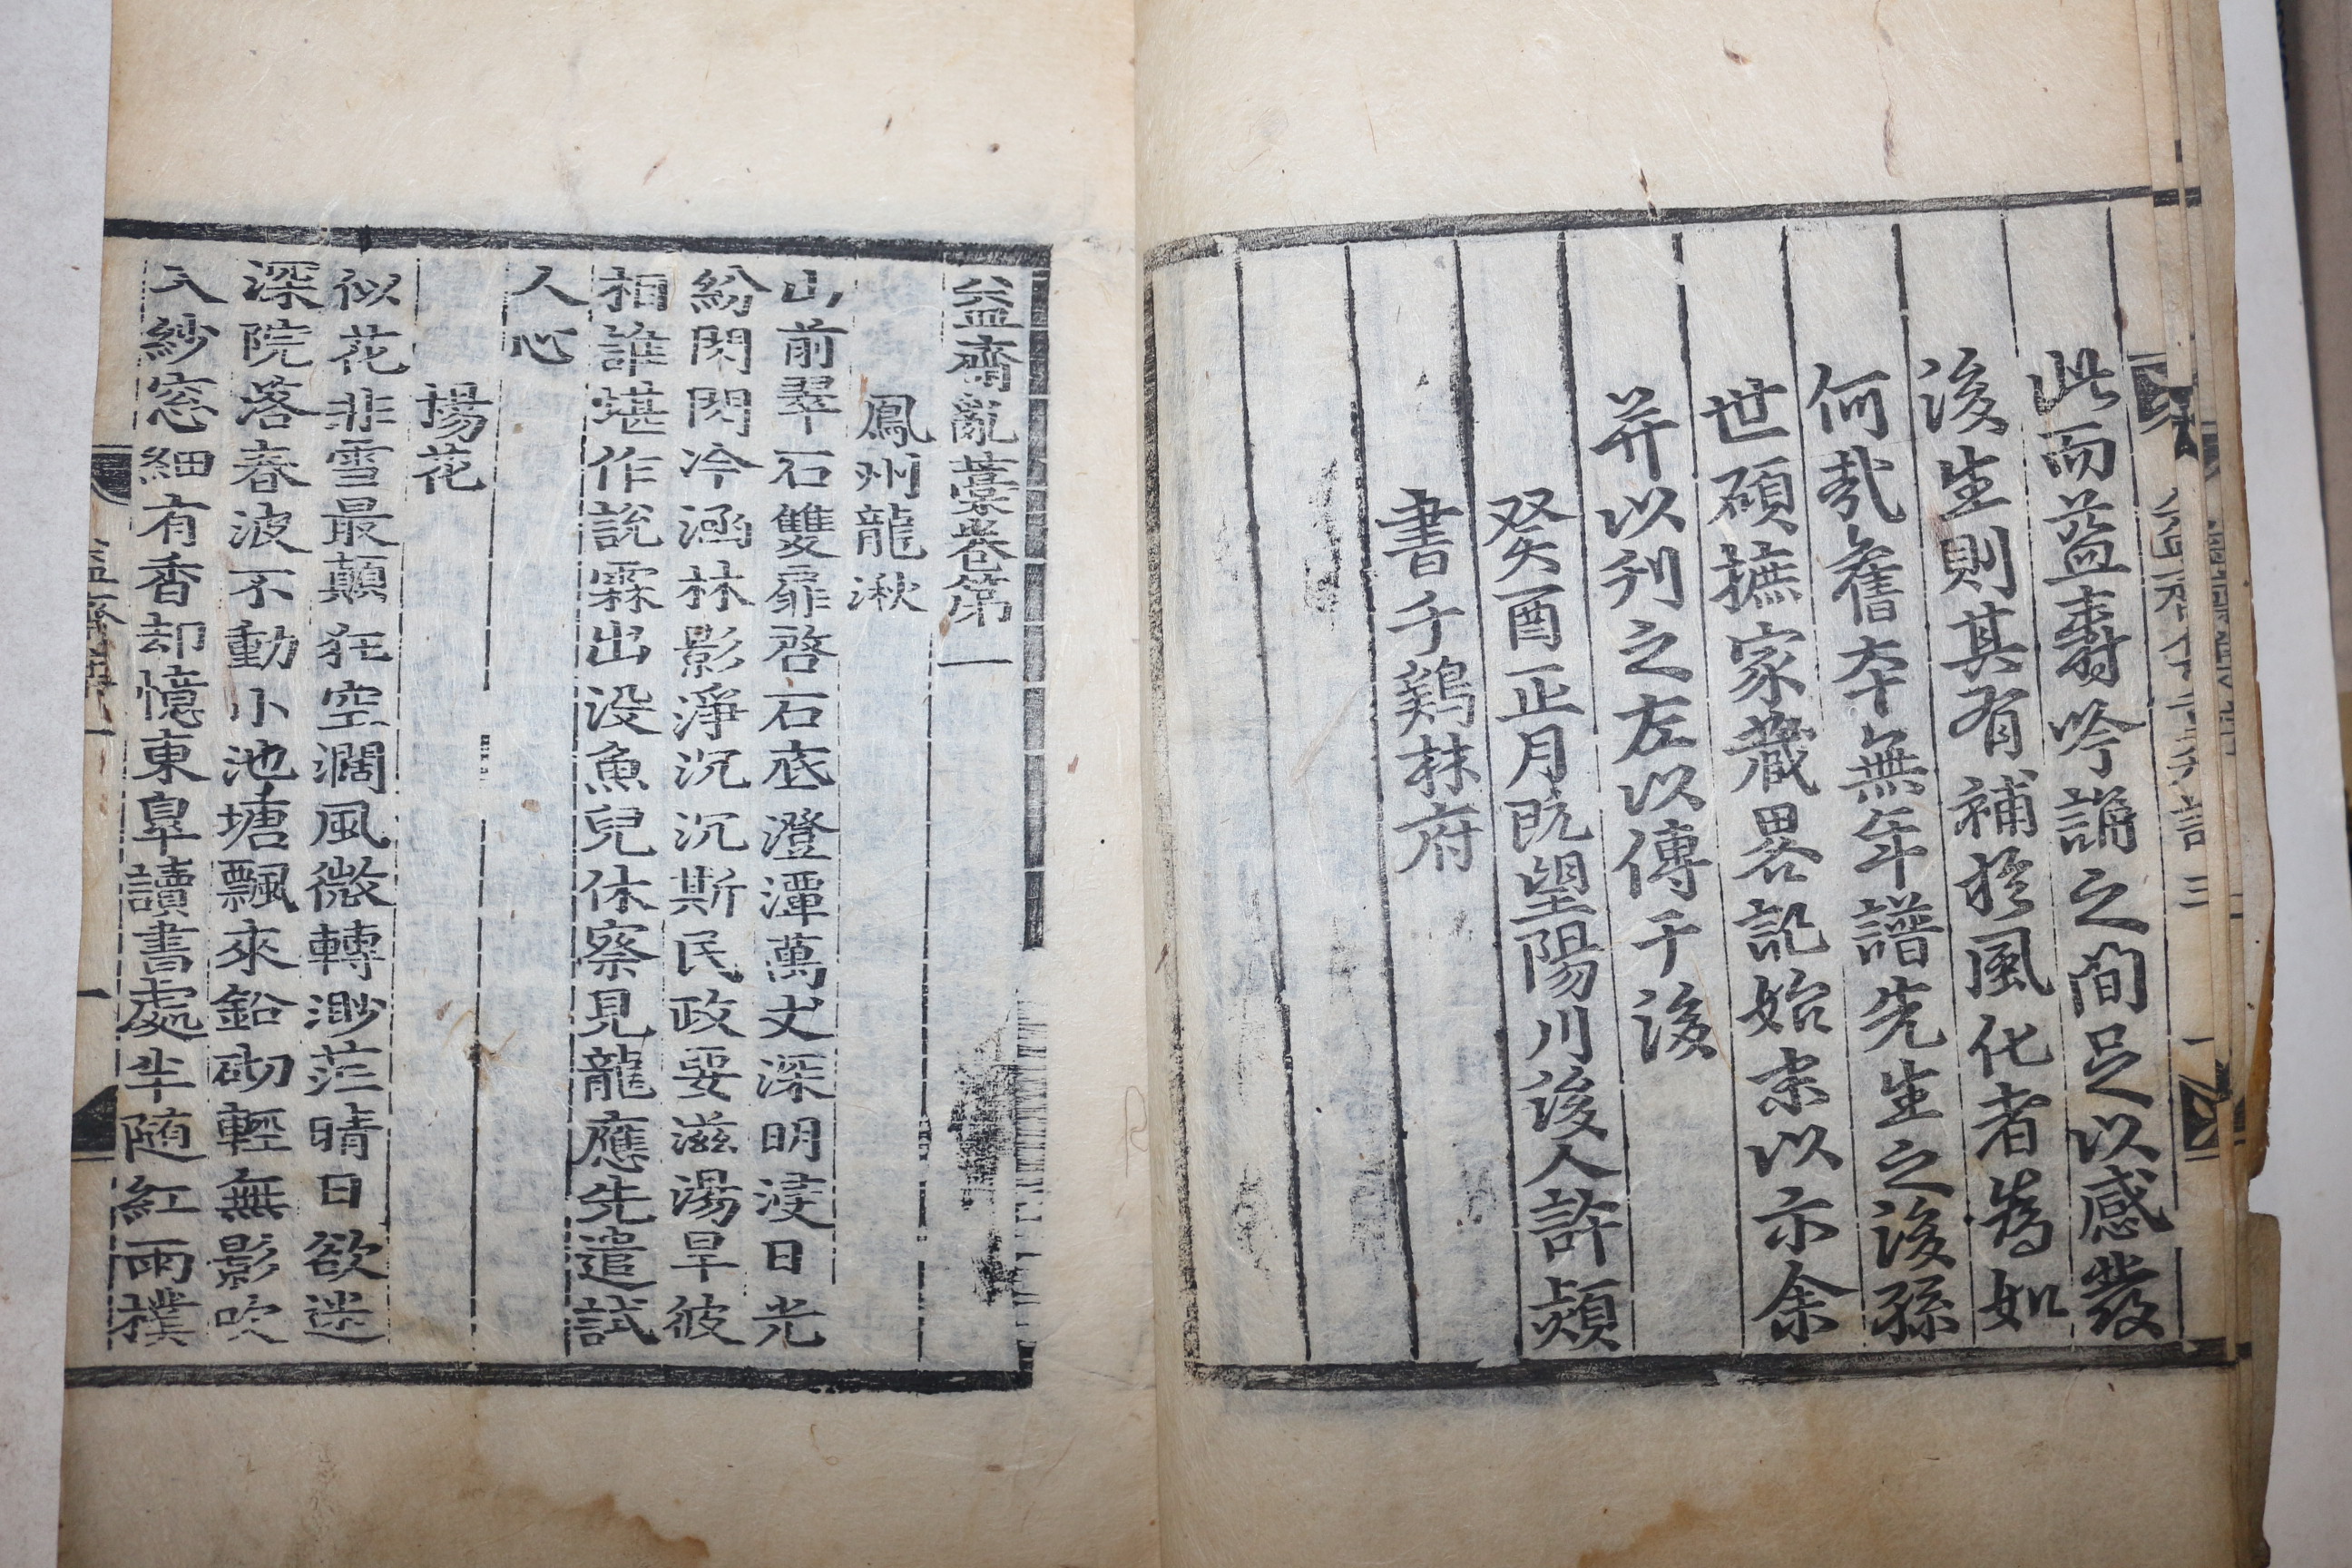 此而益壽吟誦之間足以感發
後生則其有補於風化者爲如
何哉舊本無年譜先生之後孫
世碩摭家藏畧記始末以示余
并以刋之左以傳于後
癸酉正月旣望陽川後人許熲
書于鷄林府
益齋亂藁卷第一
鳳州龍湫
山前翠石雙扉啓石底澄潭萬丈深明浸日光
紛閃閃冷涵林影淨沉沉斯民政要滋湯旱彼
相誰堪作說霖出沒魚兒休察見龍應先遣試
人心
楊花
似花非雪最顚狂空濶風微轉渺茫晴日欲迷
深院落春波不動小池塘飄來鉛砌輕無影吹
入紗窓細有香却憶東皐讀書處半随紅雨撲